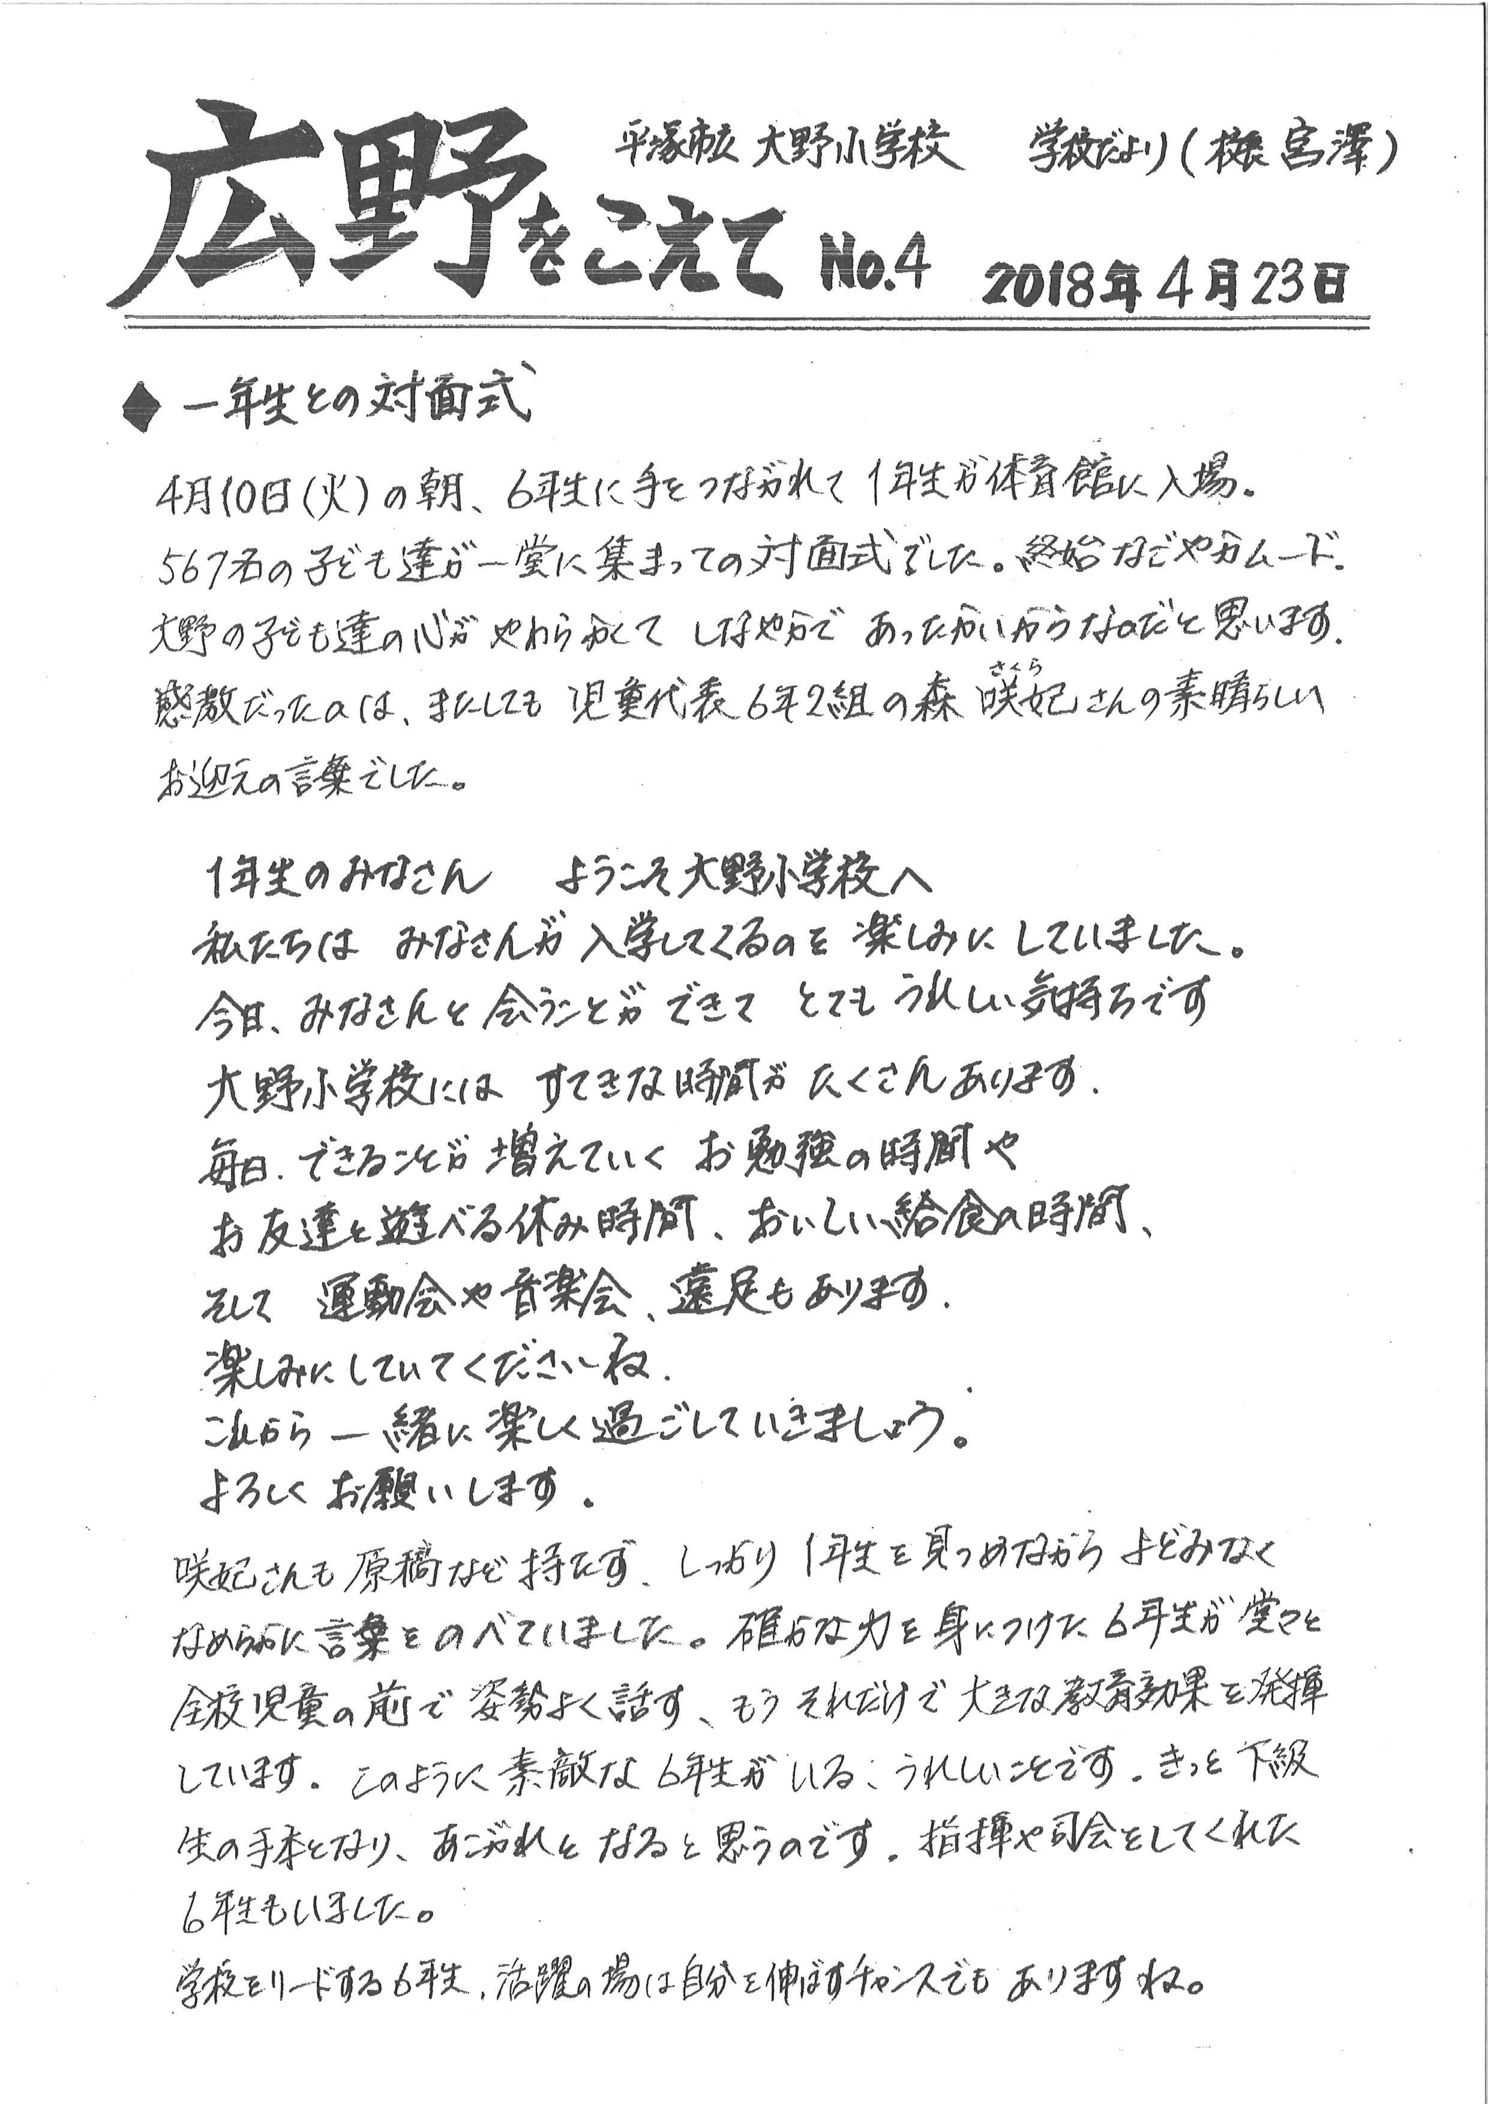 平塚市立 大野小学校 学校だより(校長 宮澤)
広野をこえて No.4 2018年4月23日
◆ 一年生との対面式
4月10日(火)の朝、6年生に手をつながれて1年生が体育館に入場。
567名の子ども達が一堂に集まっての対面式でした。終始なごやかムード.
大野の子ども達の心がやわらかくて しなやかで あったかいからなのだと思います.
感激だったのは、またしても 児童代表6年2組の森 咲妃さんの素晴らしい
さくら
お迎えの言葉でした。
1年生のみなさん ようこそ大野小学校へ
私たちは みなさんが 入学してくるのを 楽しみにしていました。
今日、みなさんと 会うことが できて とても うれしい気持ちです
大野小学校には すてきな時間が たくさんあります.
毎日.できることが 増えていく お勉強の時間や
お友達と遊べる休み時間、おいしい給食の時間、
そして 運動会や音楽会、遠足もあります.
楽しみにしていてくださいね.
これから 一緒に楽しく過ごしていきましょう。
よろしく お願いします.
咲妃さんも 原稿など 持たず、しっかり 1年生を見つめながら よどみなく
なめらかに言葉をのべていました。確かな力を身につけた6年生が堂々と
全校児童の前で 姿勢よく話す、もう それだけで 大きな教育効果を発揮
しています. このように素敵な 6年生がいる、うれしいことです. きっと 下級
生の手本となり、あこがれと なると思うのです. 指揮や司会をしてくれた
6年生もいました。
学校をリードする6年生、活躍の場は自分を伸ばすチャンスでも ありますね。